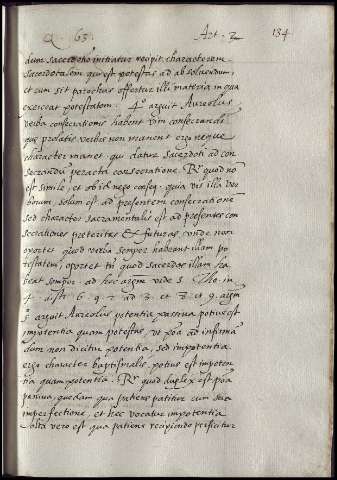 Q. 63. Art. 2 134
dum sacerdotio initiatur recipit characterem
sacerdotalem qui est potestas ad absoluendum,
et cum sit parochus offertur illi materia in qua
exerceat potestatem: 4º arguit Aureolus
verba consecrationis habent vim consecrandi
quę prolatis verbis non manent ergo neque
character manet qui datur sacerdoti ad con
secrandū peracta consecratione. Rr quod no
est simile, et ob id nego conseq. quia vis illa ver
borum, solum est ad presentem consecrationē
sed character sacramentalis est ad presentes con
secrationes preteritas et futuras, vnde non
oportet quod verba semper habeant illam po
testatem, oportet tn quod sacerdos illam ha
beat semper. ad hęc argm vide S. Tho. in
4. dist. 6. q. 1. ad 2. et 3. et 9. argm
5. arguit Aureolus potentia passiua potius est
impotentia quam potestas, vt poā ad infirmā
dum non dicitur potentia, sed impotentia
ergo character baptismalis, potius est impoten
tia quam potentia. Rr quod duplex est poā
passiua, quędam qua patiens patitur cum sua
imperfectione, et hęc vocatur impotentia
alia vero est qua patiens recipiendo perficitur